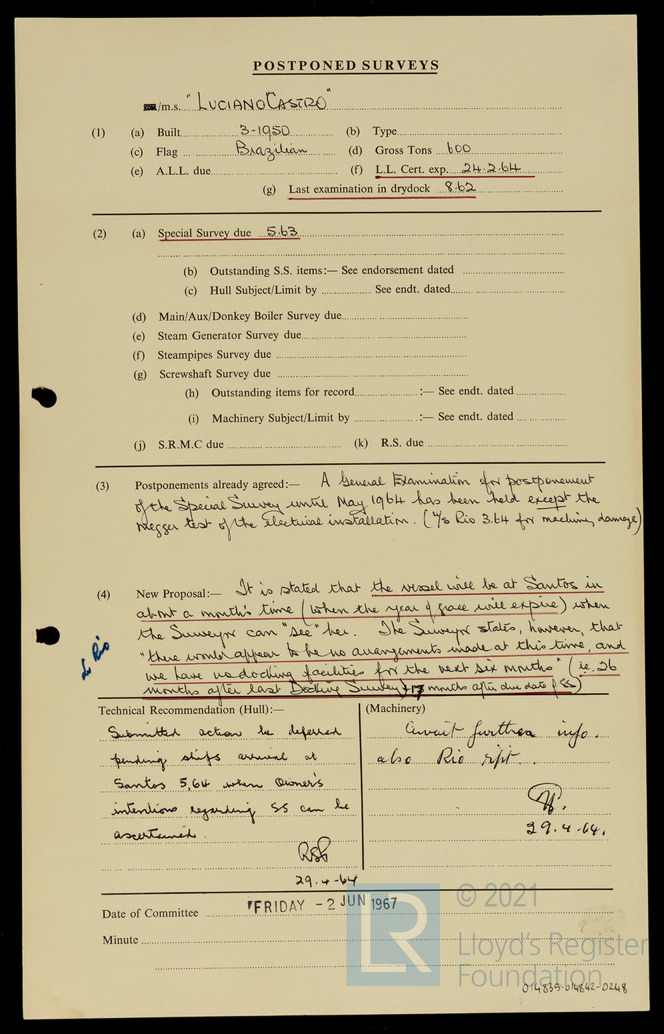 POSTPONED SURVEYS
/m.s. "LUCIANO CASTRO"
(1) (a) Built 3-1950 (b) Type
(c) Flag Brazilian (d) Gross Tons 600
(e) A.L.L. due (f) L.L. Cert. exp. 24.2.64
(g) Last examination in drydock 8.62
(2) (a) Special Survey due 5.63
(b) Outstanding S.S. items:— See endorsement dated
(c) Hull Subject/Limit by See endt. dated
(d) Main/Aux/Donkey Boiler Survey due
(e) Steam Generator Survey due
(f) Steampipes Survey due
(g) Screwshaft Survey due
(h) Outstanding items for record :— See endt. dated
(i) Machinery Subject/Limit by :— See endt. dated
(j) S.R.M.C due (k) R.S. due
(3) Postponements already agreed:— A General Examination for postponement
of the Special Survey until May 1964 has been held except the
megger test of the electrical installation. ( Rio 3.64 for machiny damage)
(4) New Proposal:— It is stated that the vessel will be at Santos in
about a month's time (when the year of grace will expire) when
the Surveyor can "see" her. The Surveyor states, however, that
"there would appear to be no arrangements made at this time, and
we have no docking facilities for the next six months" (ie. 26
months after last Docking Survey & 17 months after due date of SS)
Rio
Technical Recommendation (Hull):—
Submitted action be deferred
pending ships arrival at
Santos 5.64 when Owner's
intentions regarding SS can be
ascertained.
29.4-64
(Machinery)
Await further info.
also Rio rept.
29.4.64.
Date of Committee FRIDAY - 2 JUN 1967
Minute
LR
© 2021
Lloyd's Register
Foundation
014839-014842-0248